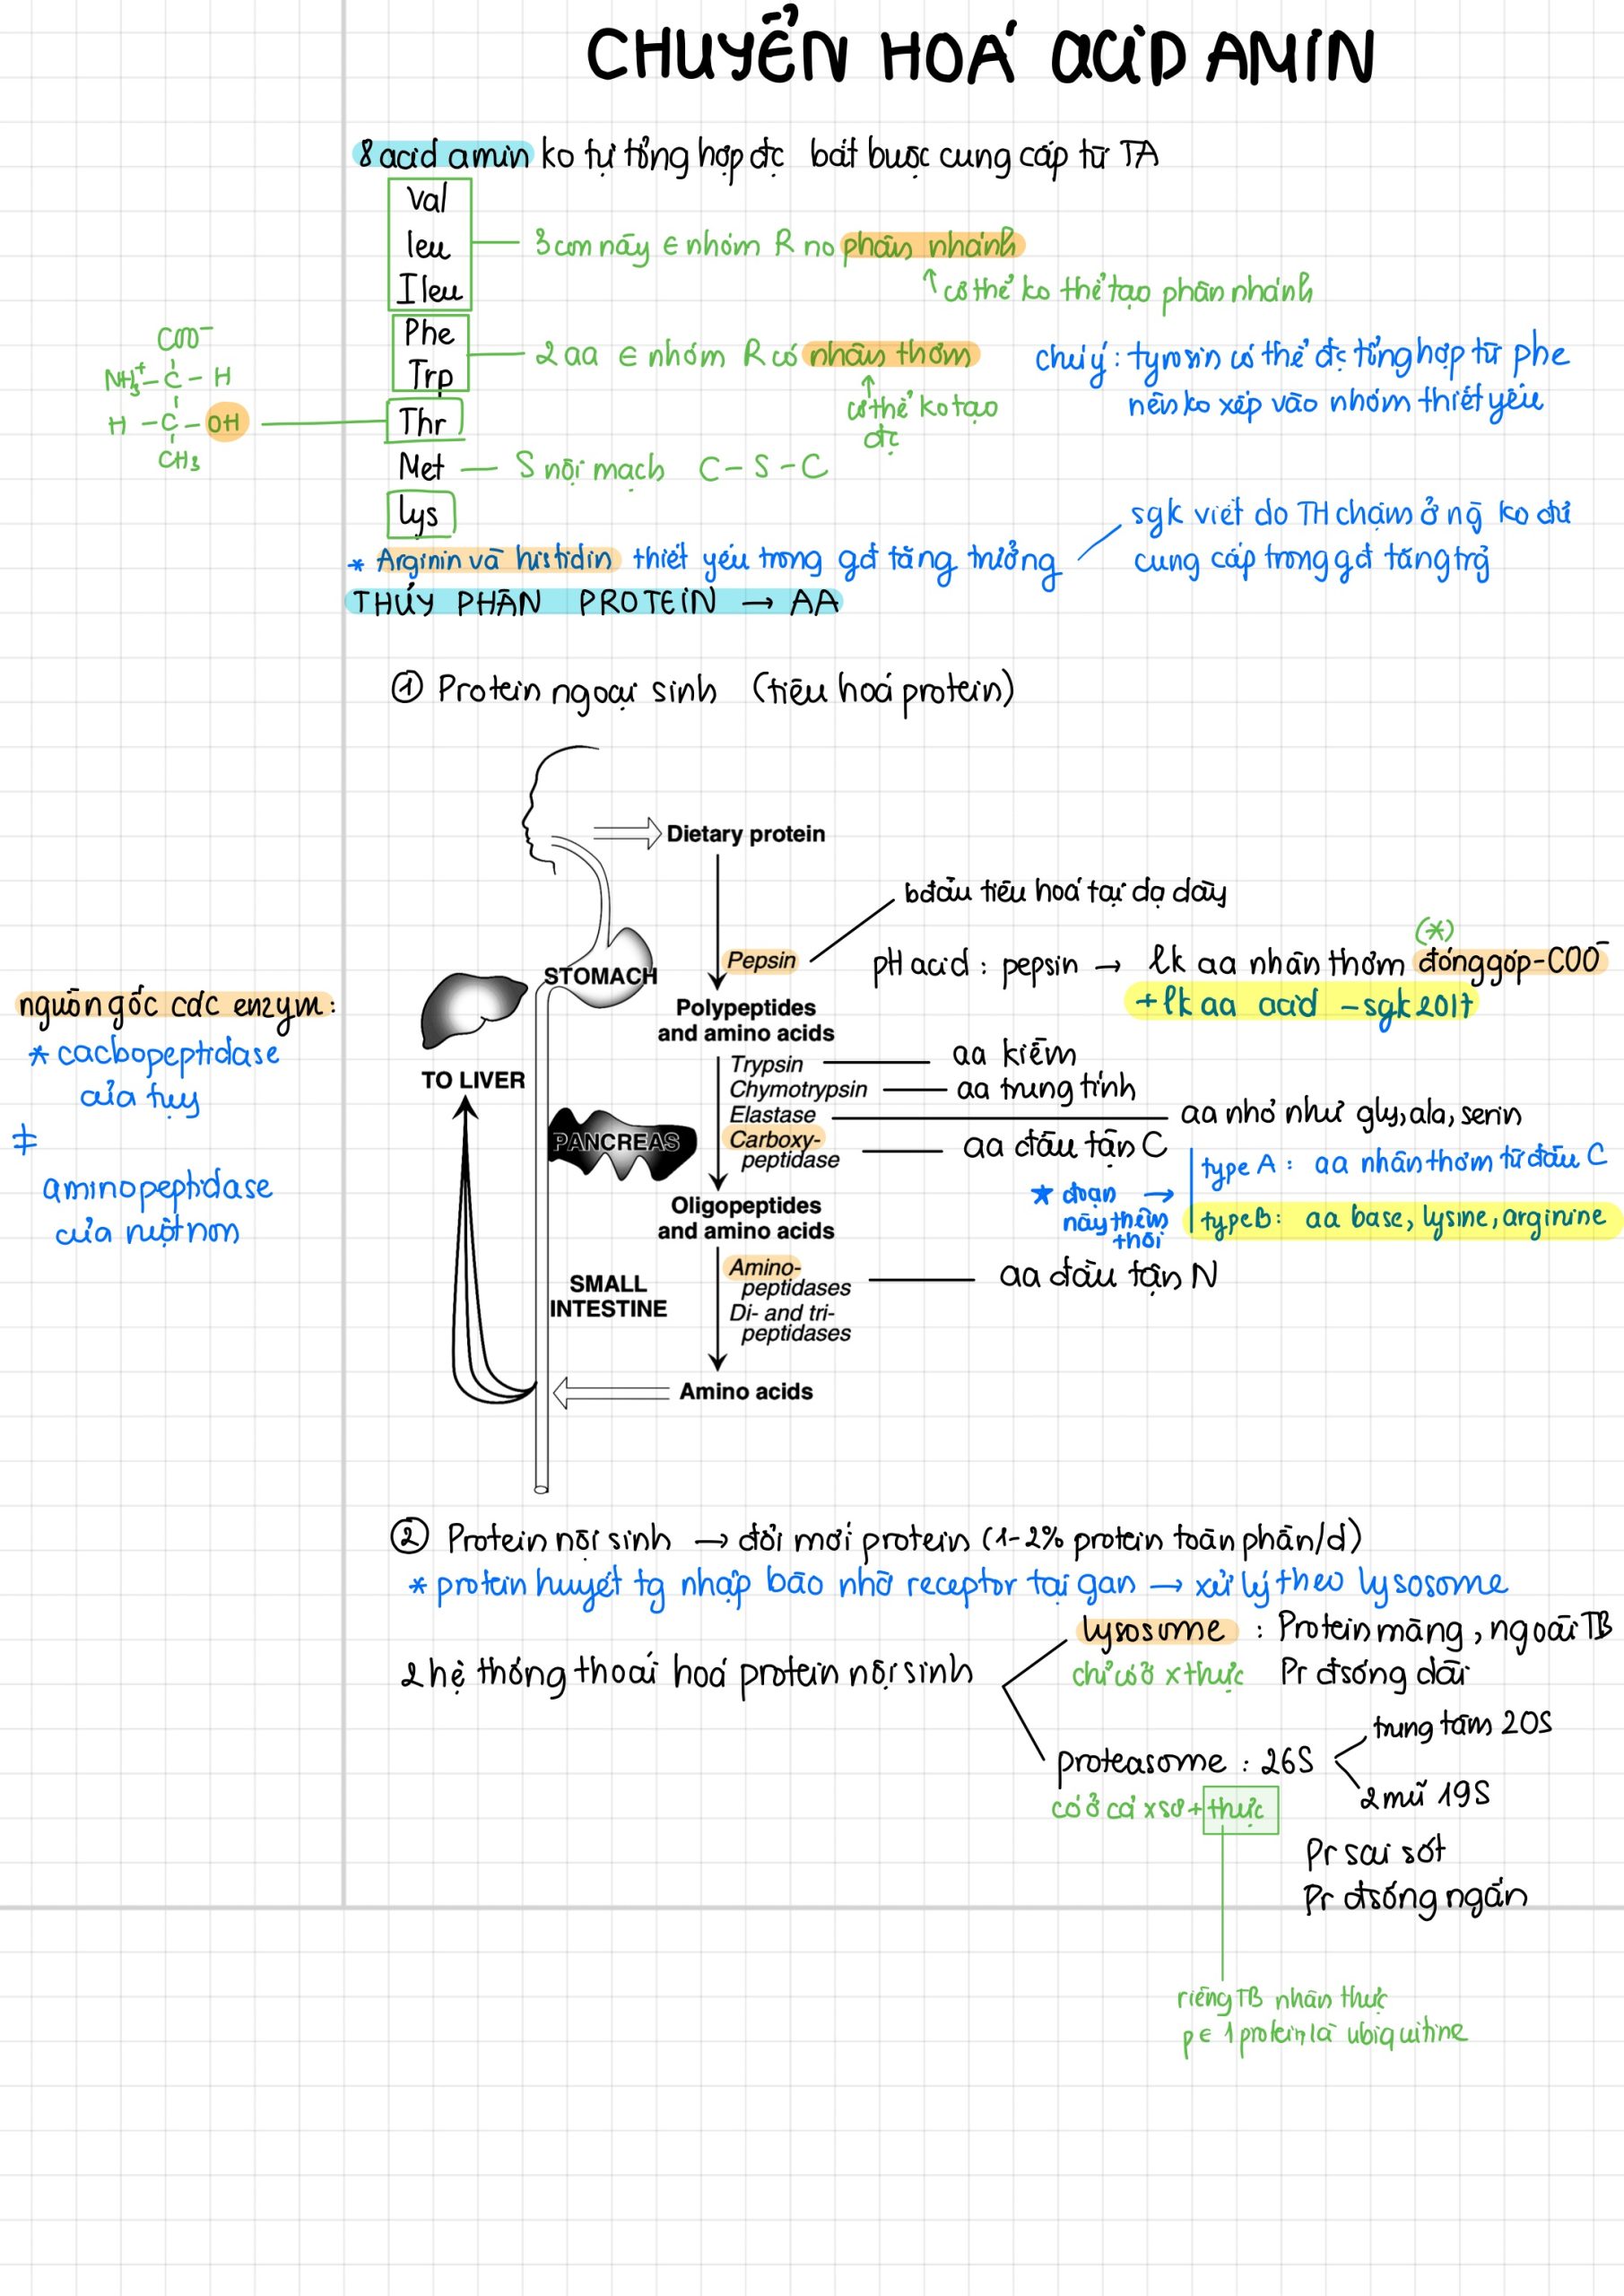 CHUYỂN HOÁ ACID AMIN
8 acid amin ko tự tổng hợp đc bắt buộc cung cấp từ TA
Val
leu
Ileu
3 con này ∈ nhóm R no phân nhánh
↑ cơ thể ko thể tạo phân nhánh
Phe
Trp
2 aa ∈ nhóm R có nhân thơm
↑
cơ thể ko tạo
đc
chú ý : tyrosin có thể đc tổng hợp từ phe
nên ko xếp vào nhóm thiết yếu
COO⁻
NH₃⁺ – C – H
H – C – OH
CH₃
Thr
Met — S nội mạch C – S – C
Lys
sgk viết do TH chậm ở ng ko đủ
cung cấp trong gđ tăng trg
* Arginin và histidin thiết yếu trong gđ tăng trưởng
THỦY PHÂN PROTEIN → AA
① Protein ngoại sinh (tiêu hoá protein)
Dietary protein
bđầu tiêu hoá tại dạ dày
Pepsin
(*)
pH acid : pepsin → lk aa nhân thơm đóng góp -COO⁻
+ lk aa acid - sgk 2017
STOMACH
Polypeptides
and amino acids
nguồn gốc các enzym :
* cacbopeptidase
của tụy
≠
aminopeptidase
của ruột non
TO LIVER
Trypsin — aa kiềm
Chymotrypsin — aa trung tính
Elastase — aa nhỏ như gly, ala, serin
PANCREAS
Carboxy-
peptidase — aa đầu tận C
* đoạn →
này thêm
thôi
type A : aa nhân thơm từ đầu C
type B : aa base, lysine, arginine
Oligopeptides
and amino acids
SMALL
INTESTINE
Amino-
peptidases — aa đầu tận N
Di- and tri-
peptidases
Amino acids
② Protein nội sinh → đổi mới protein (1-2% protein toàn phần/d)
* protein huyết tg nhập bào nhờ receptor tại gan → xử lý theo lysosome
2 hệ thống thoái hoá protein nội sinh
lysosome : Protein màng, ngoài TB
chỉ có ở x thực Pr đsống dài
proteasome : 26S
trung tâm 20S
2 mũ 19S
có ở cả x sơ + thực
Pr sai sót
Pr đsống ngắn
riêng TB nhân thực
p ∈ 1 protein là ubiquitine